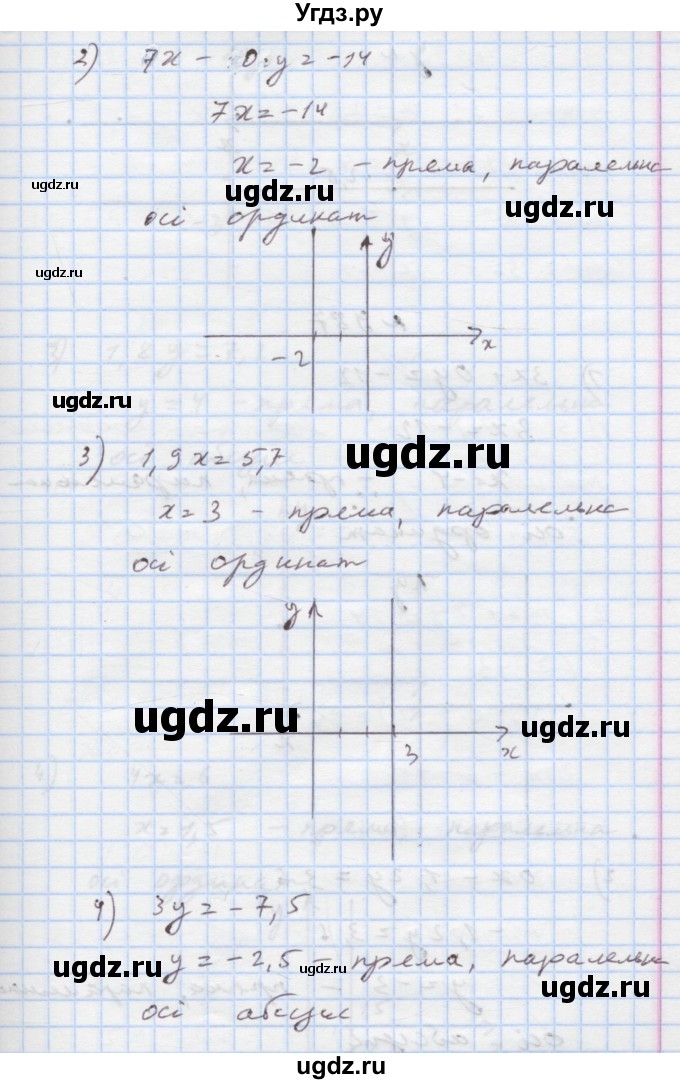 Угдз.ру
2) 7x - 0·y = -14
7x = -14
x = -2 - пряма, паралельна
ugdz.ru
ugdz.ru
осі ординат
y
ugdz.ru
-2
x
ugdz.ru
3) 1,9x = 5,7
ugdz.ru
x = 3 - пряма, паралельна
осі ординат
y
ugdz.ru
ugdz.ru
3
x
4) 3y = -7,5
y = -2,5 - пряма, паралельна
ugdz.ru
ugdz.ru
осі абсцис
ugdz.ru